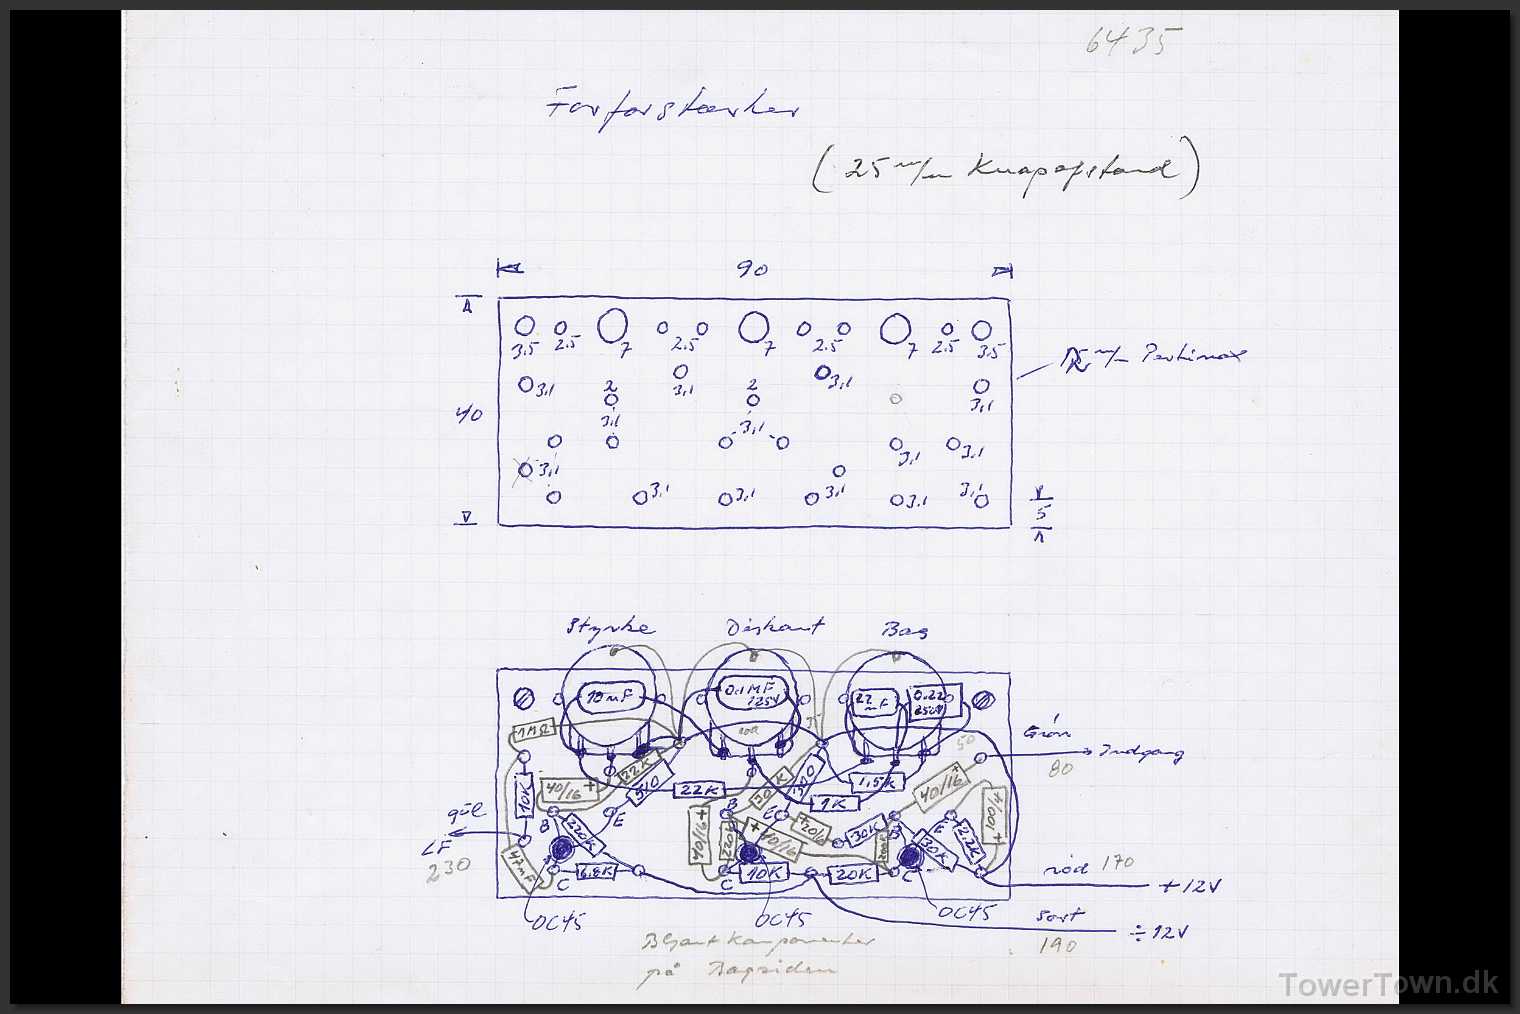 6435
Forforstærker
(25 m/m Knapafstand)
90
3.5 2.5 7 2.5 7 2.5 7 2.5 3.5
m/m Pertinax
3,1 2 3,1 2 3,1 3,1
40
3,1 3,1 3,1 3,1
3,1
3,1 3,1 3,1 3,1 3,1
5
Styrke Diskant Bas
10mF 0.1MF 125V 22mF 0.22 250V
1MΩ
Grön
Indgang
50
80
22K
40/16 +
10K
510
22K
1,5K
1K
40/16 +
gül
LF
230
B E B E B E
220K
40/16 +
40/16 +
30K
30K
2.2K
100/4 +
47mF
C 6.8K C 10K 20K C
röd 170
+12V
OC45 OC45 OC45
sort
÷12V
190
Komponenter
på Bagsiden
TowerTown.dk